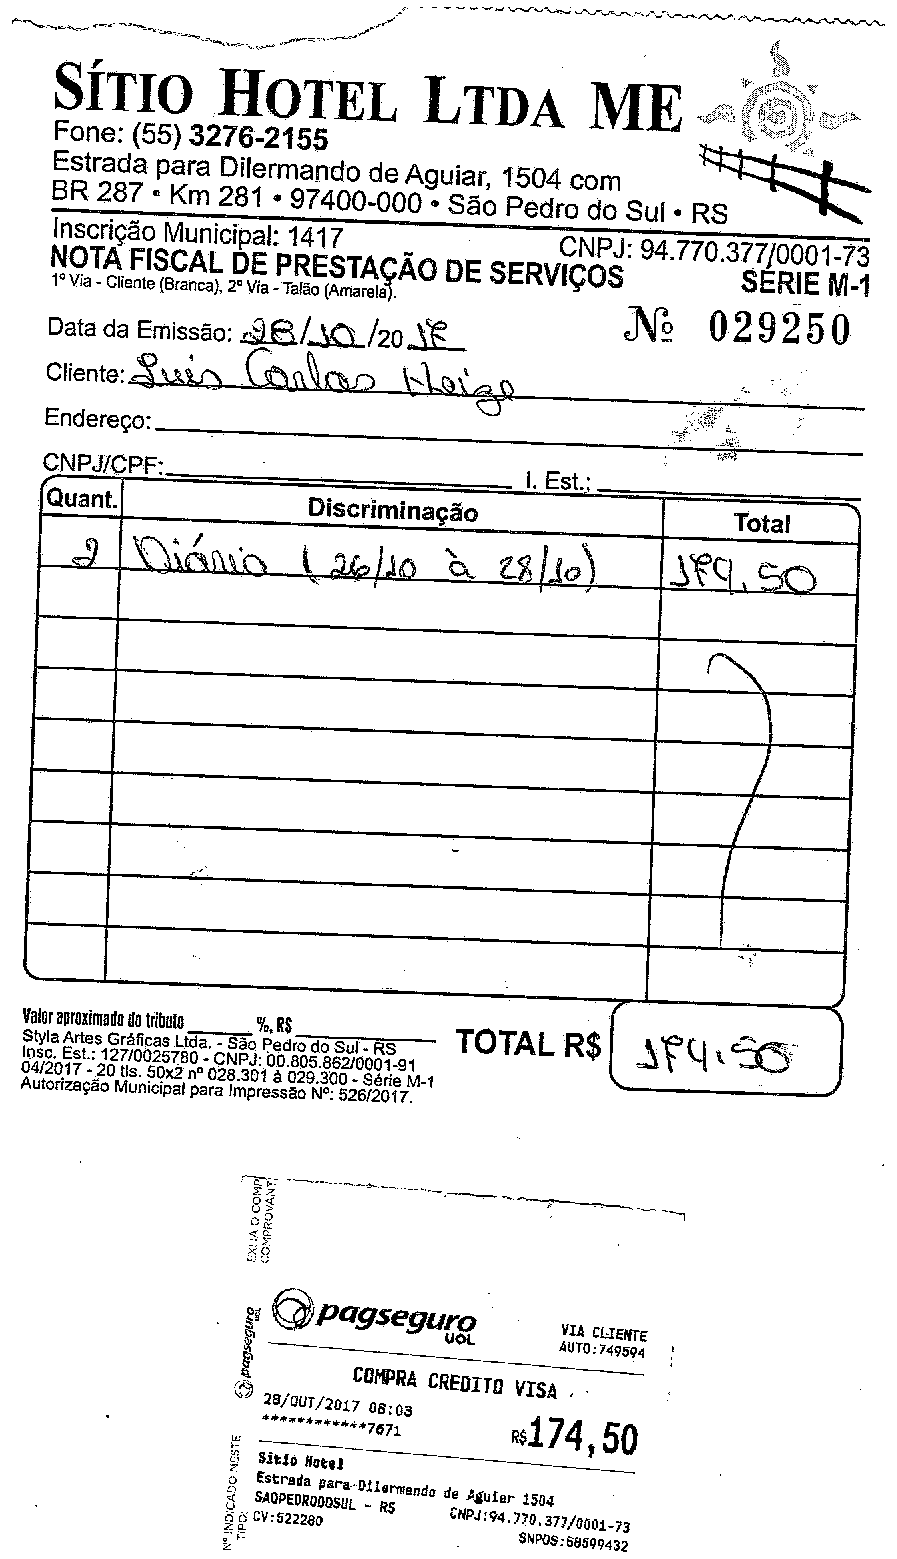 SÍTIO HOTEL LTDA ME
Fone: (55) 3276-2155
Estrada para Dilermando de Aguiar, 1504 com
BR 287 • Km 281 • 97400-000 • São Pedro do Sul • RS
Inscrição Municipal: 1417 CNPJ: 94.770.377/0001-73
NOTA FISCAL DE PRESTAÇÃO DE SERVIÇOS SÉRIE M-1
1ª Via - Cliente (Branca), 2ª Via - Talão (Amarela).
Data da Emissão: 28/10/2017 Nº 029250
Cliente: Luis Carlos
Endereço:
CNPJ/CPF: I. Est.:
Quant. Discriminação Total
2 Diária (26/10 à 28/10) 174,50
Valor aproximado do tributo %, R$
Styla Artes Gráficas Ltda. - São Pedro do Sul - RS
Insc. Est.: 127/0025780 - CNPJ: 00.805.862/0001-91
04/2017 - 20 tls. 50x2 nº 028.301 à 029.300 - Série M-1
Autorização Municipal para Impressão Nº: 526/2017.
TOTAL R$ 174,50
EXIJA O COMP
COMPROVANT
pagseguro
UOL
VIA CLIENTE
AUTO:749594
COMPRA CREDITO VISA
28/OUT/2017 08:03
************7671
R$174,50
Sitio Hotel
Estrada para Dilermando de Aguier 1504
SAOPEDRODOSUL - RS CNPJ:94.770.377/0001-73
CV:522280 SNPOS:68599432
pagseguro UOL
Nº INDICADO NESTE
TIPO: